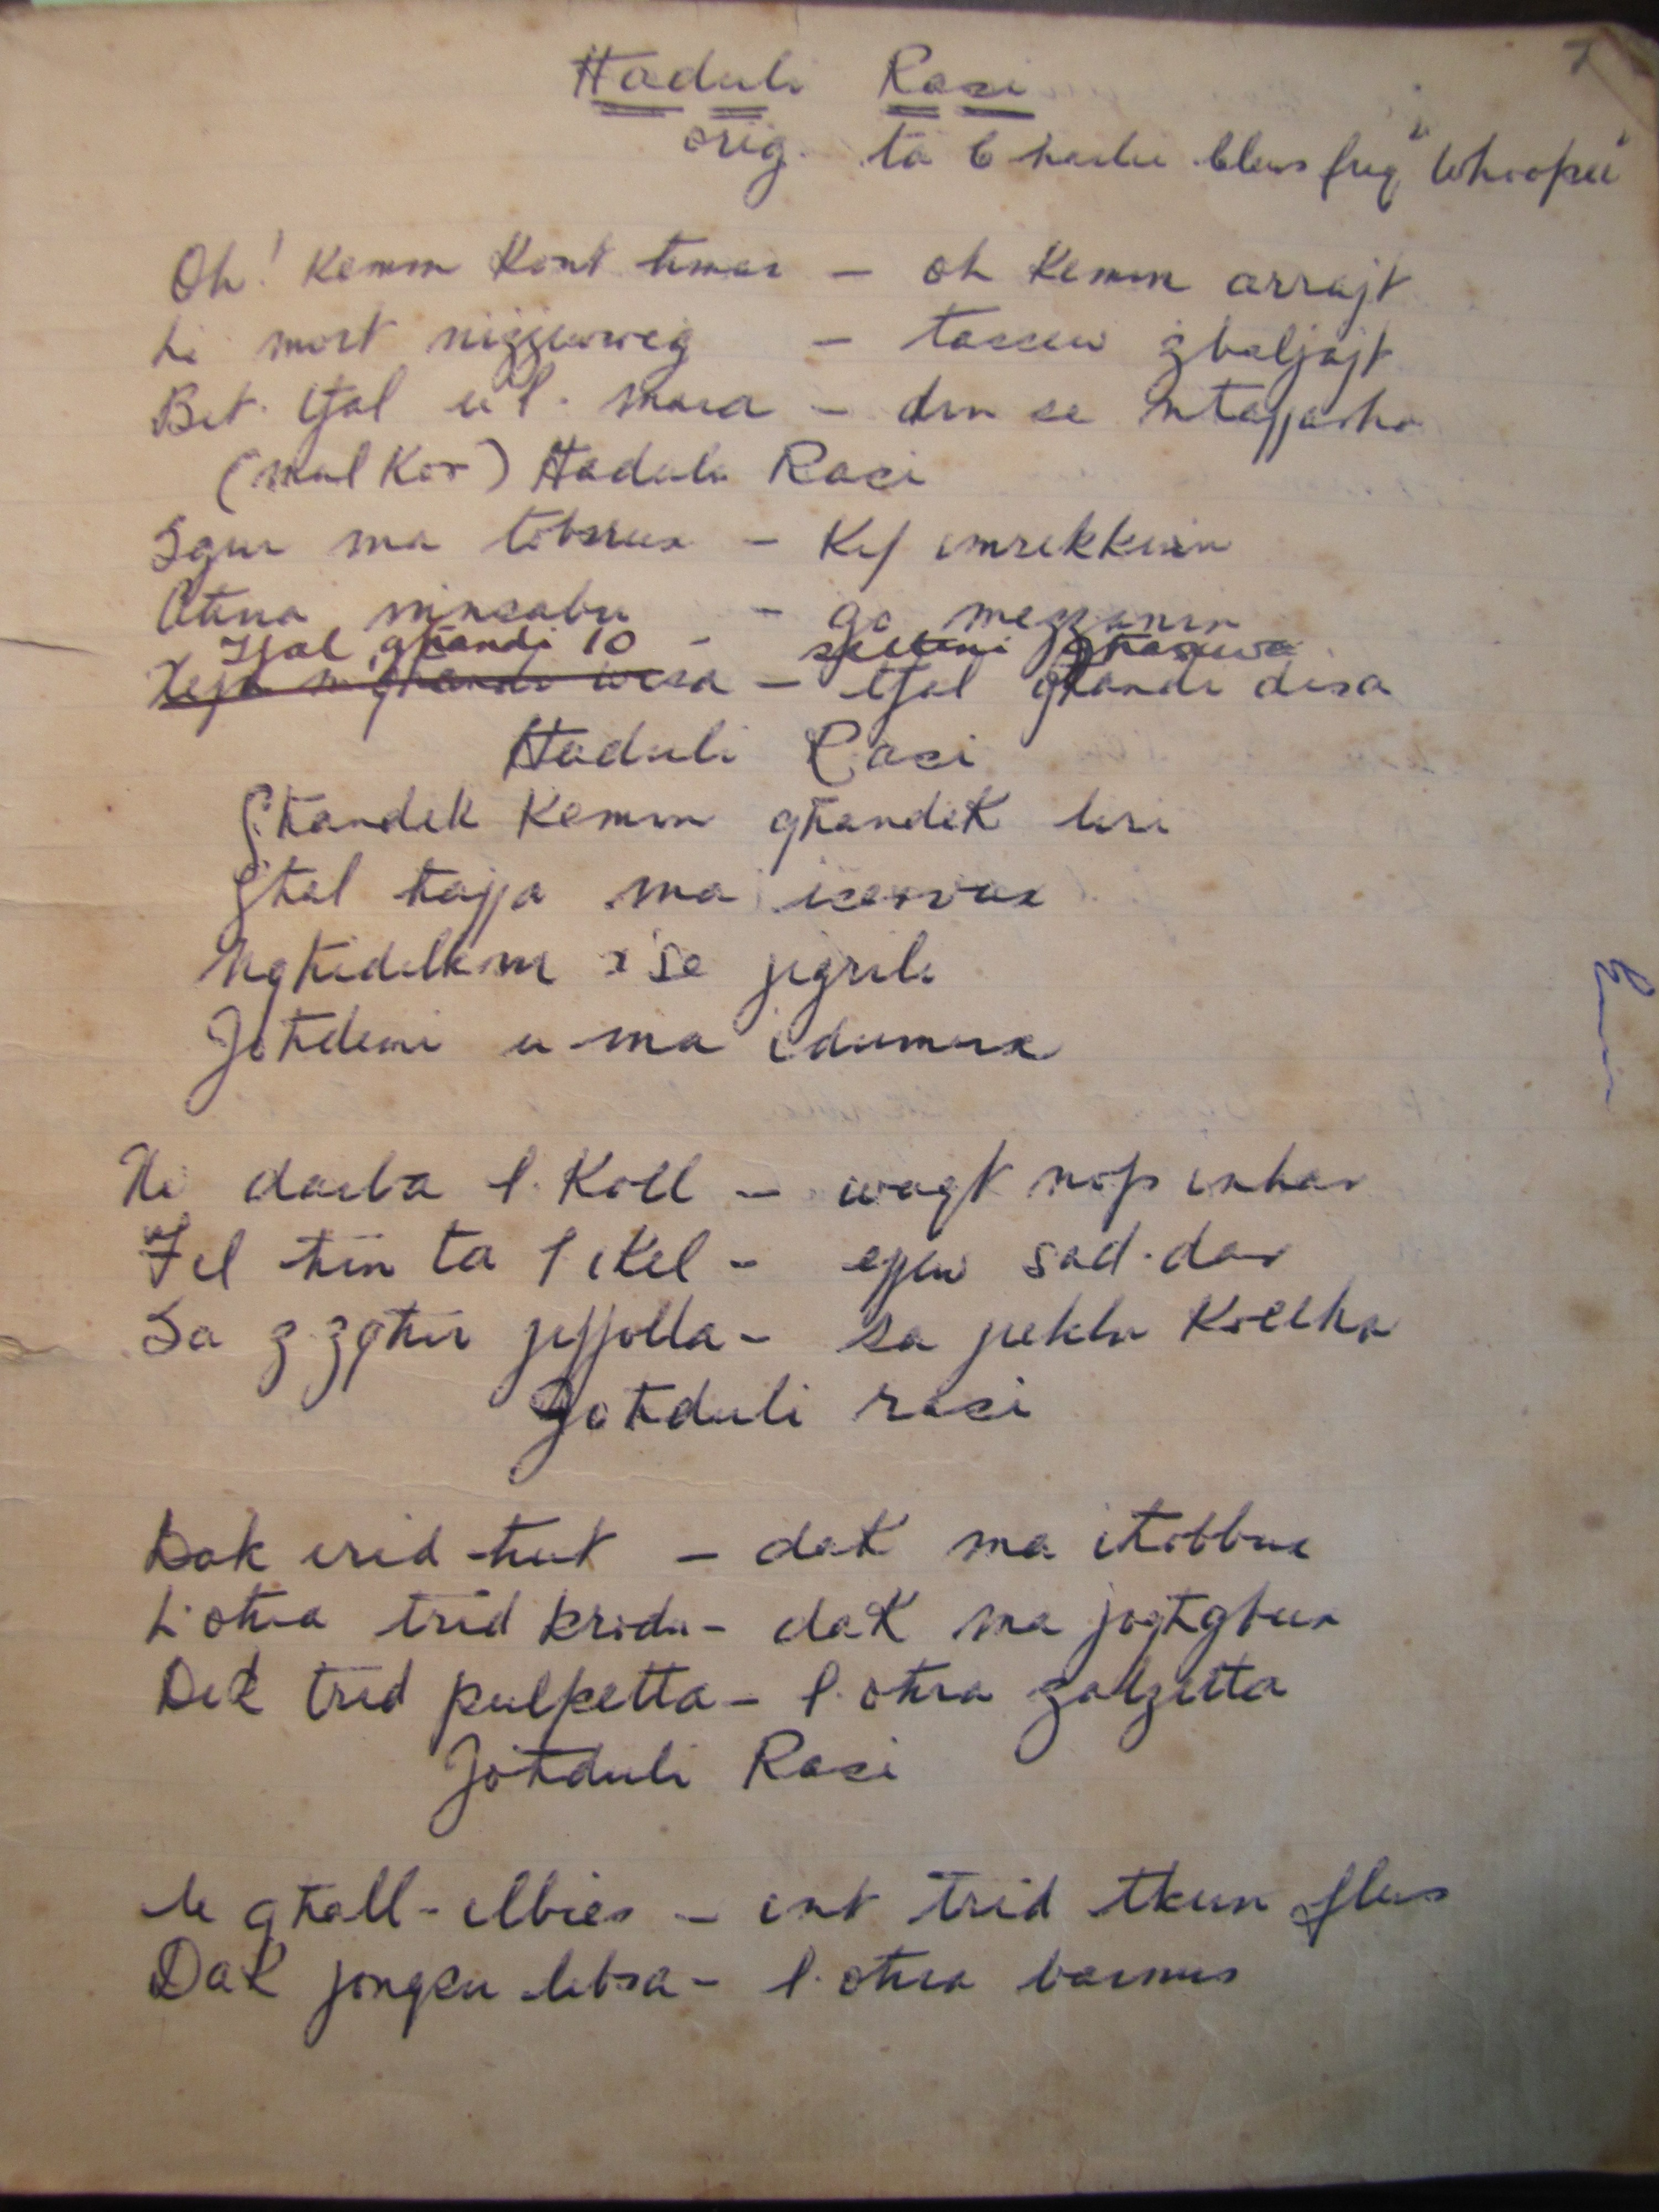 7
Ħaduli Rasi
orig. ta b'karlu blus fuq "Whoopee"
Oh! Kemm Kont timar – oh Kemm arrajt
Li mort niżżewweġ – tassew żbaljajt
Bit. tfal u l. mara – din se ntajjarha
(mal Kor) Ħaduli Rasi
Sgur ma tobsrux – Kif imrekknin
Aħna ninsabu – ġo mezzanin
Tfal għandi 10 – għasura
tfal għandi disa
Ħaduli Rasi
Għandek Kemm għandeK liri
Għal ħajja ma iservux
Ngħidilkom x'se jiġrili
Joħduni u ma idumux
Ħi daħba l. Koll – waqt nofs inhar
Fil ħin ta l iKel – ejjew sad-dar
Sa ż-żgħir jiffolla – sa jieklu Kollha
Joħduli rasi
Dak irid ħut – daK ma iħobbux
L-oħra trid brodu – daK ma jogħġbux
DiK trid pulpetta – l. oħra zalzetta
Joħduli Rasi
U għall-ilbies – int trid tkun flus
DaK jonqsu libsa – l. oħra barnus